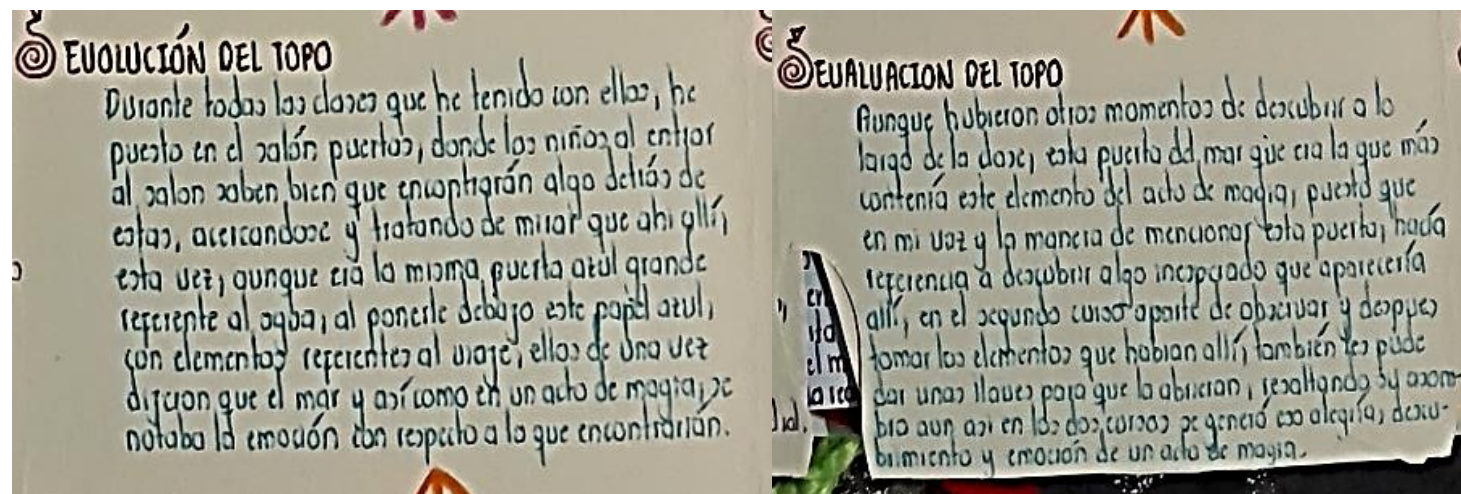 EVOLUCIÓN DEL TOPO
Durante todas las clases que he tenido con ellos, he
puesto en el salón puertas, donde los niños al entrar
al salon saben bien que encontrarán algo detrás de
estas, acercandose y tratando de mirar que ahi allí,
esta vez, aunque era la misma puerta azul grande
referente al agua, al ponerle debajo este papel azul,
con elementos referentes al viaje, ellos de una vez
dijeron que el mar y así como en un acto de magia, se
notaba la emoción con respecto a lo que encontrarían.
EVALUACION DEL TOPO
Aunque hubieron otros momentos de descubrir a lo
largo de la clase, esta puerta del mar que era la que más
contenía este elemento del acto de magia, puesto que
en mi voz y la manera de mencionar esta puerta, hacía
referencia a descubrir algo inesperado que aparecería
allí, en el segundo curso aparte de observar y despues
tomar los elementos que habian allí, también les pude
dar unas llaves para que la abrieran, resaltando su asom-
bro aun asi en los dos cursos se generó esa alegría, descu-
brimiento y emoción de un acto de magia.